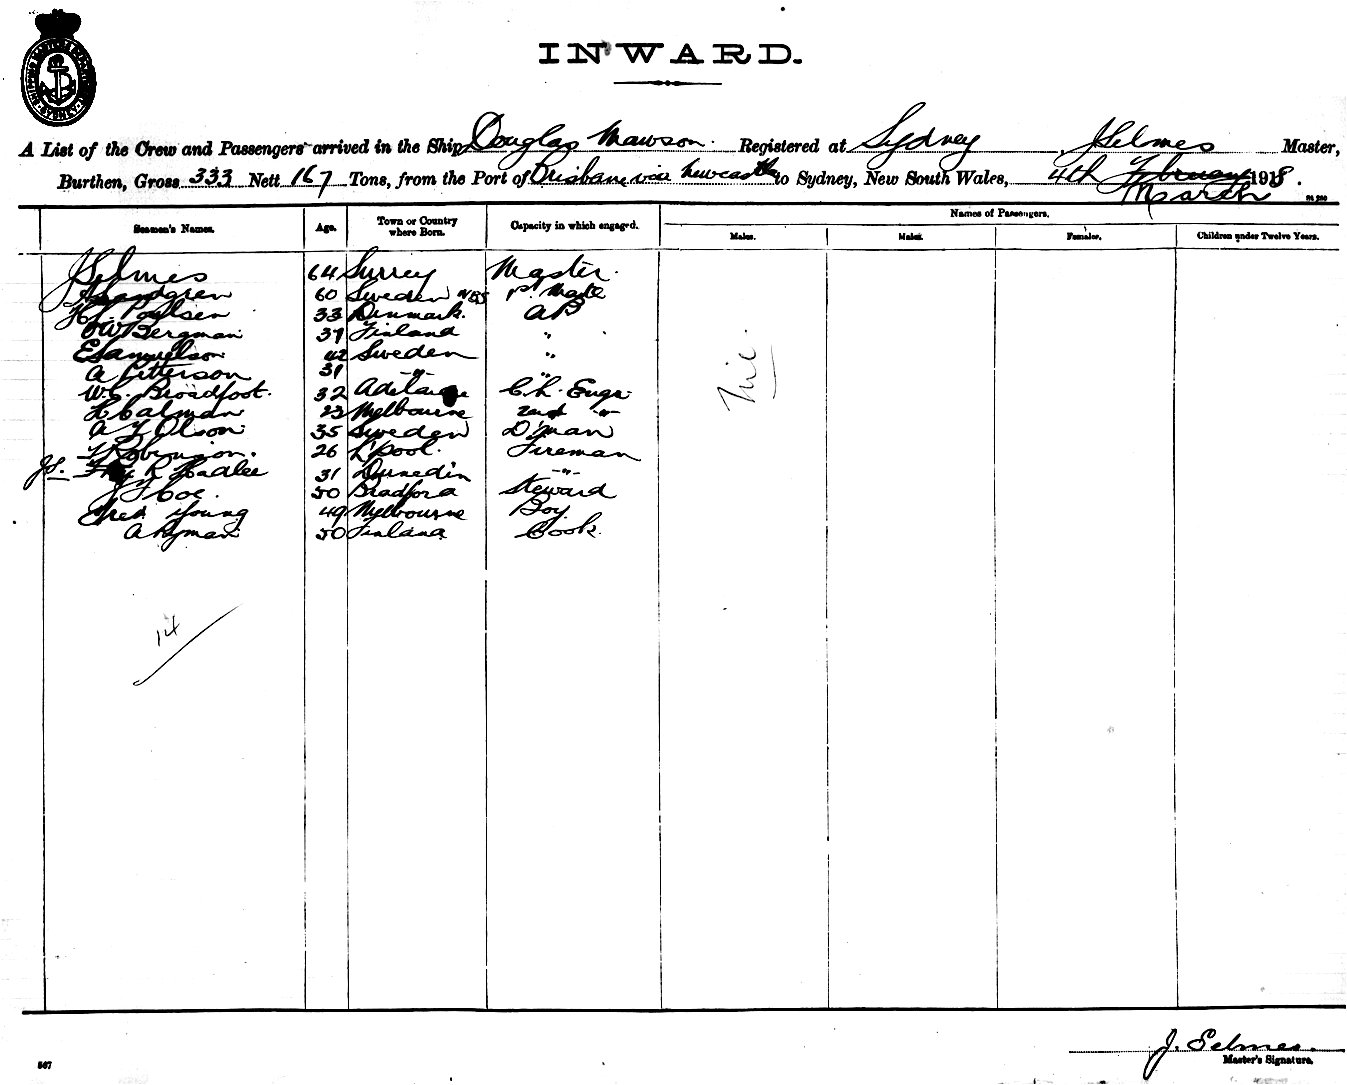 INWARD.
A List of the Crew and Passengers arrived in the Ship Douglas Mawson. Registered at Sydney, J Selmes Master,
Burthen, Gross 333 Nett 167 Tons, from the Port of Brisbane via Newcastle to Sydney, New South Wales, 4th February 1918.
March
Seamen's Names. Age. Town or Country where Born. Capacity in which engaged. Names of Passengers.
Males. Males. Females. Children under Twelve Years.
J Selmes 64 Surrey Master.
60 Sweden 1st Mate
Poulsen 33 Denmark. AB
Bergman 37 Finland "
E Samuelson 42 Sweden "
A Petterson 31 -"- "
W. Broadfoot. 32 Adelaide Ch. Engr.
Calman 23 Melbourne 2nd -"-
A Olson 35 Sweden D'man
Robinson. 26 L'pool. Fireman
J.S. R Hadlee 31 Dunedin -"-
Coe. 50 Bradford Steward
Young 49 Melbourne Boy.
A Nyman 50 Finland Cook.
Nil
14
J. Selmes.
Master's Signature.
567